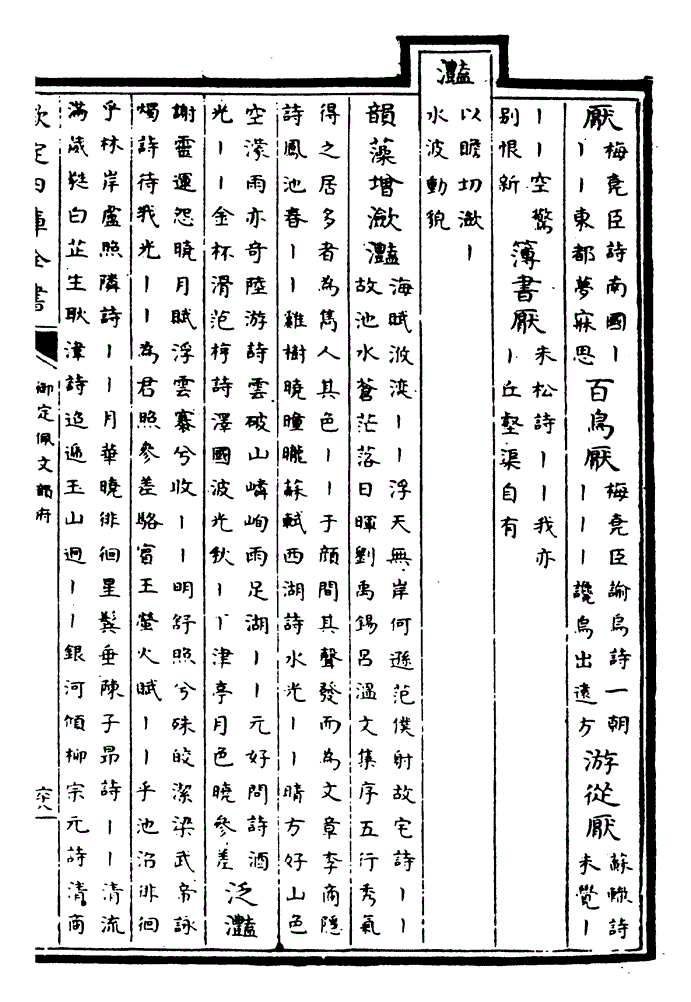 厭
梅堯臣詩南國丨
丨丨東都夢寐思
百鳥厭
梅堯臣諭烏詩一朝
丨丨丨讒烏出遠方
游從厭
蘇轍詩
未覺丨
丨丨空驚
別恨新
簿書厭
朱松詩丨丨我亦
丨丘壑渠自有
灩
以贍切瀲丨
水波動貌
韻藻增瀲灩
海賦浟湙丨丨浮天無岸何遜范僕射故宅詩丨丨
故池水蒼茫落日暉劉禹錫呂溫文集序五行秀氣
得之居多者為雋人其色丨丨于顔間其聲發而為文章李商隱
詩鳳池春丨丨雞樹曉曈曨蘇軾西湖詩水光丨丨晴方好山色
空濛雨亦奇陸游詩雲破山嶙峋雨足湖丨丨元好問詩酒
光丨丨金杯滑范梈詩澤國波光秋丨丨津亭月色曉參差
泛灩
謝靈運怨曉月賦浮雲褰兮收丨丨明舒照兮殊皎潔梁武帝詠
燭詩待我光丨丨為君照參差駱賓王螢火賦丨丨乎池沼徘徊
乎林岸盧照隣詩丨丨月華曉徘徊星鬢垂陳子昂詩丨丨清流
滿葳蕤白芷生耿湋詩迢遞玉山迥丨丨銀河傾柳宗元詩清商
欽定四庫全書
御定佩文韻府